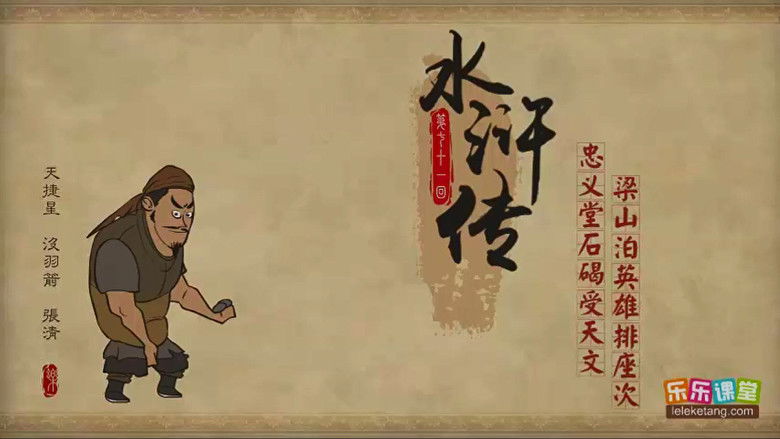 水浒传
第七十一回
忠义堂石碣受天文
梁山泊英雄排座次
天捷星 沒羽箭 張清
乐乐课堂
leleketang.com